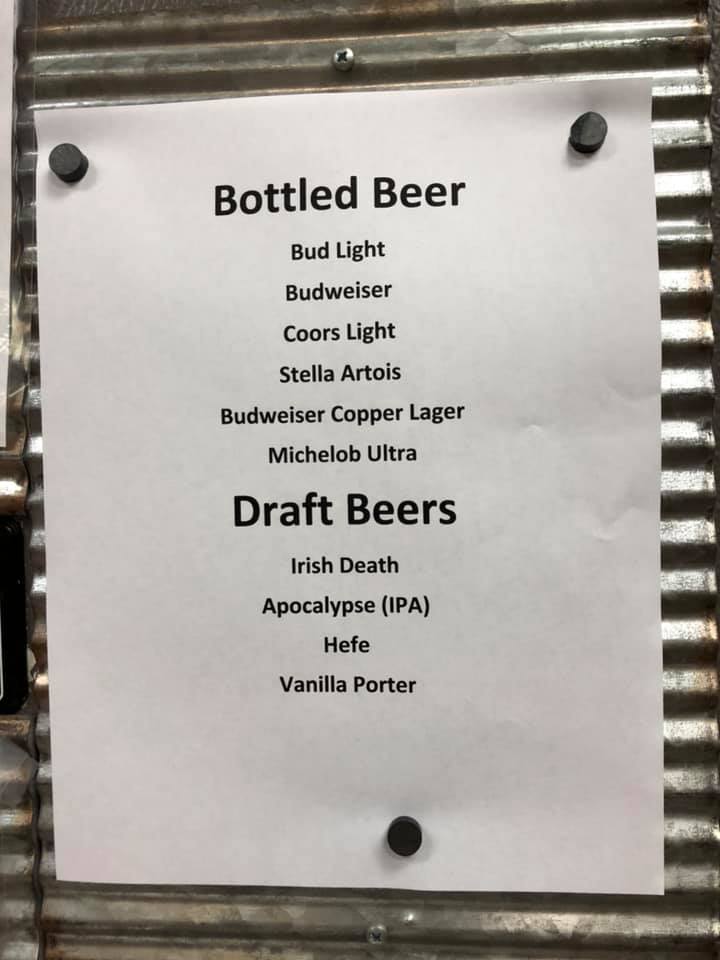 Bottled Beer
Bud Light
Budweiser
Coors Light
Stella Artois
Budweiser Copper Lager
Michelob Ultra
Draft Beers
Irish Death
Apocalypse (IPA)
Hefe
Vanilla Porter